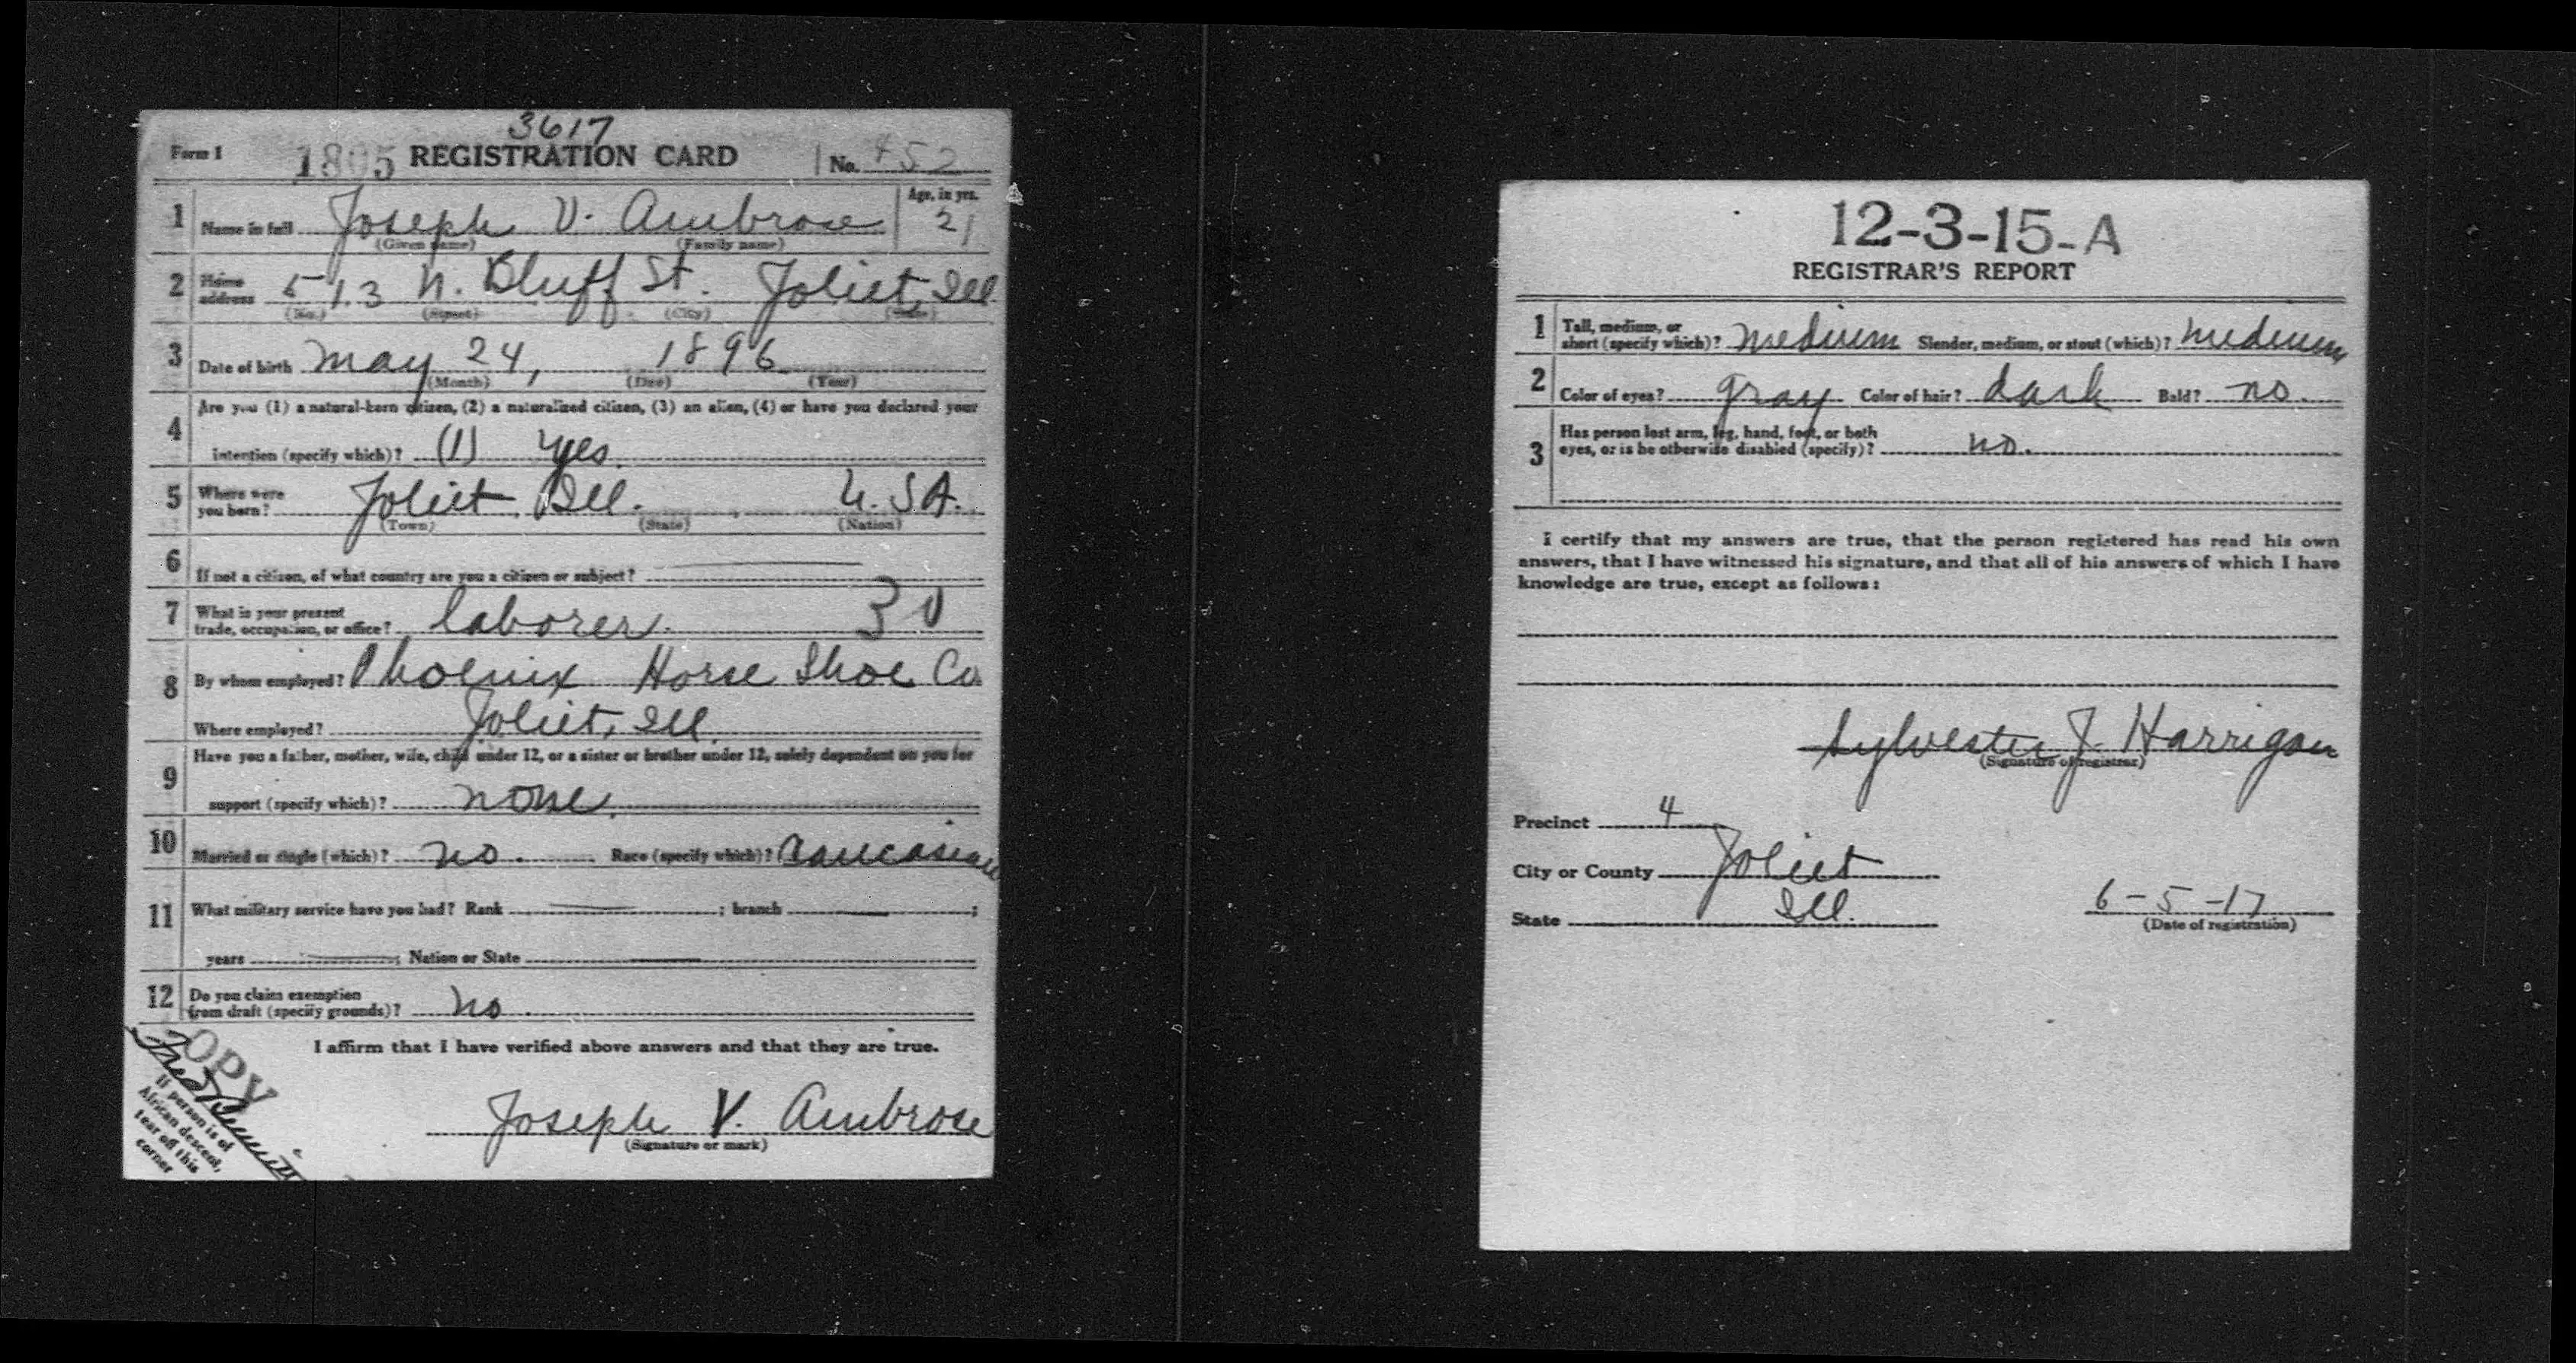 3617
Form 1 1805 REGISTRATION CARD No. 452
1 Name in full Joseph V. Ambrose Age, in yrs. 21
(Given name) (Family name)
2 Home address 513 N. Bluff St. Joliet, Ill
(No.) (Street) (City) (State)
3 Date of birth May 24, 1896
(Month) (Day) (Year)
4 Are you (1) a natural-born citizen, (2) a naturalized citizen, (3) an alien, (4) or have you declared your
intention (specify which)? (1) yes.
5 Where were you born? Joliet Ill. U.S.A.
(Town) (State) (Nation)
6 If not a citizen, of what country are you a citizen or subject?
7 What is your present trade, occupation, or office? laborer. 30
8 By whom employed? Phoenix Horse Shoe Co
Where employed? Joliet, Ill.
9 Have you a father, mother, wife, child under 12, or a sister or brother under 12, solely dependent on you for
support (specify which)? none.
10 Married or single (which)? no. Race (specify which)? Caucasian
11 What military service have you had? Rank ; branch ;
years ; Nation or State
12 Do you claim exemption from draft (specify grounds)? no.
I affirm that I have verified above answers and that they are true.
Joseph V. Ambrose
(Signature or mark)
COPY
If person is of
African descent,
tear off this
corner
12-3-15-A
REGISTRAR'S REPORT
1 Tall, medium, or short (specify which)? medium Slender, medium, or stout (which)? medium
2 Color of eyes? gray Color of hair? dark Bald? no.
3 Has person lost arm, leg, hand, foot, or both
eyes, or is he otherwise disabled (specify)? no.
I certify that my answers are true, that the person registered has read his own
answers, that I have witnessed his signature, and that all of his answers of which I have
knowledge are true, except as follows:
Sylvester J. Harrigan
(Signature of registrar)
Precinct 4
City or County Joliet
State Ill. 6-5-17
(Date of registration)